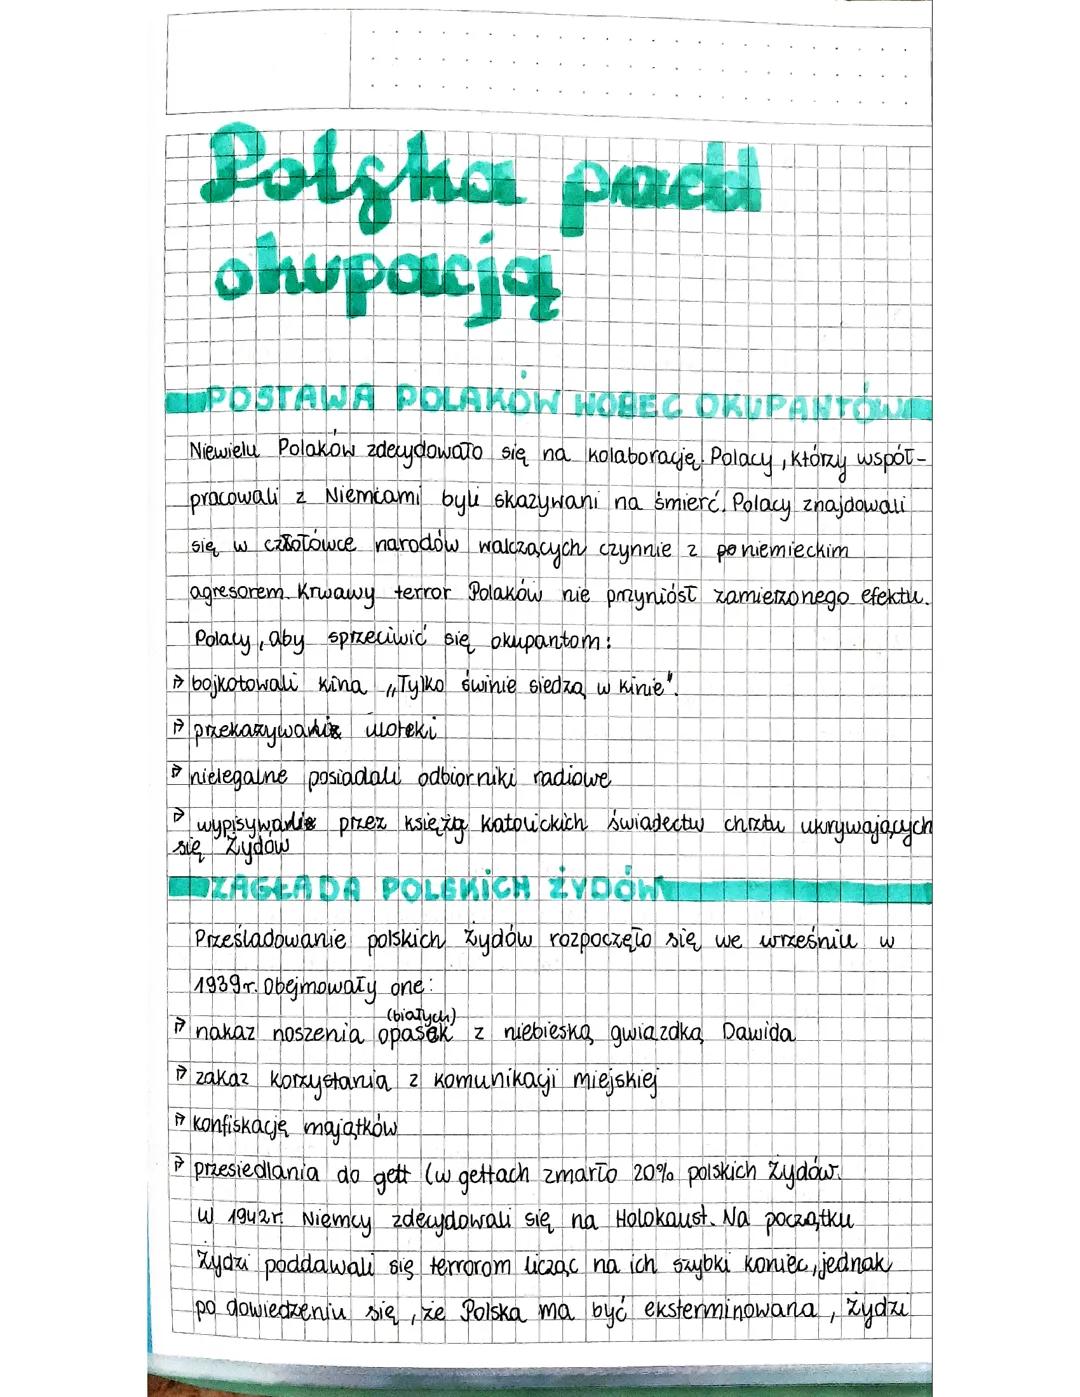 Polska pod
okupacją
POSTAWA POLAKÓW WOBEC OKUPANTÓW
Niewielu Polaków zdecydowało się na kolaborację. Polacy, którzy współ-
pracowali z Niemcami byli skazywani na śmierć. Polacy znajdowali
się w czołówce narodów walczących czynnie z niemieckim
agresorem. Krwawy terror Polaków nie przyniósł zamierzonego efektu.
Polacy, aby sprzeciwić się okupantom:
⇒ bojkotowali kina „Tylko świnie siedzą w kinie".
⇒ ulotki
⇒ nielegalne posiadali odbiorniki radiowe
⇒ przez księży katolickich świadectw chrztu ukrywających
się Żydów
ZAGŁADA POLSKICH ŻYDÓW
Prześladowanie polskich Żydów rozpoczęło się we wrześniu w
1939r. Obejmowały one:
(białych)
⇒ nakaz noszenia opasek z niebieską gwiazdką Dawida
⇒ zakaz korzystania z komunikacji miejskiej
⇒ konfiskację majątków
⇒ przesiedlania do gett (w gettach zmarło 20% polskich Żydów.
W 1942r. Niemcy zdecydowali się na Holokaust. Na początku
Żydzi poddawali się terrorom licząc na ich szybki koniec, jednak
po dowiedzeniu się, że Polska ma być eksterminowana, Żydzi